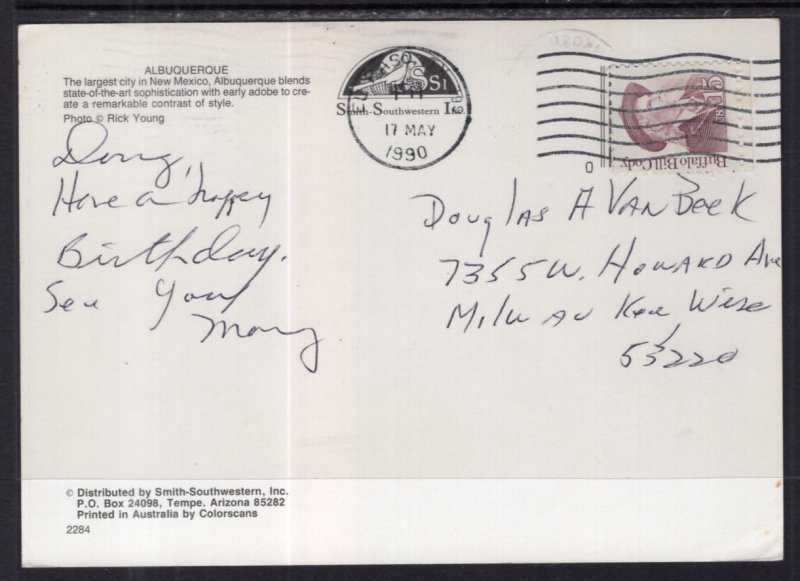 ALBUQUERQUE
The largest city in New Mexico, Albuquerque blends
state-of-the-art sophistication with early adobe to cre-
ate a remarkable contrast of style.
Photo © Rick Young
Doug,
Have a happy
Birthday.
See you
S1
Smith-Southwestern Inc
17 MAY
1990
Buffalo Bill Cody
USA
15c
0
Douglas A Van Beek
7355 W. Howard Ave
Milwau Kee Wisc
53220
© Distributed by Smith-Southwestern, Inc.
P.O. Box 24098, Tempe, Arizona 85282
Printed in Australia by Colorscans
2284